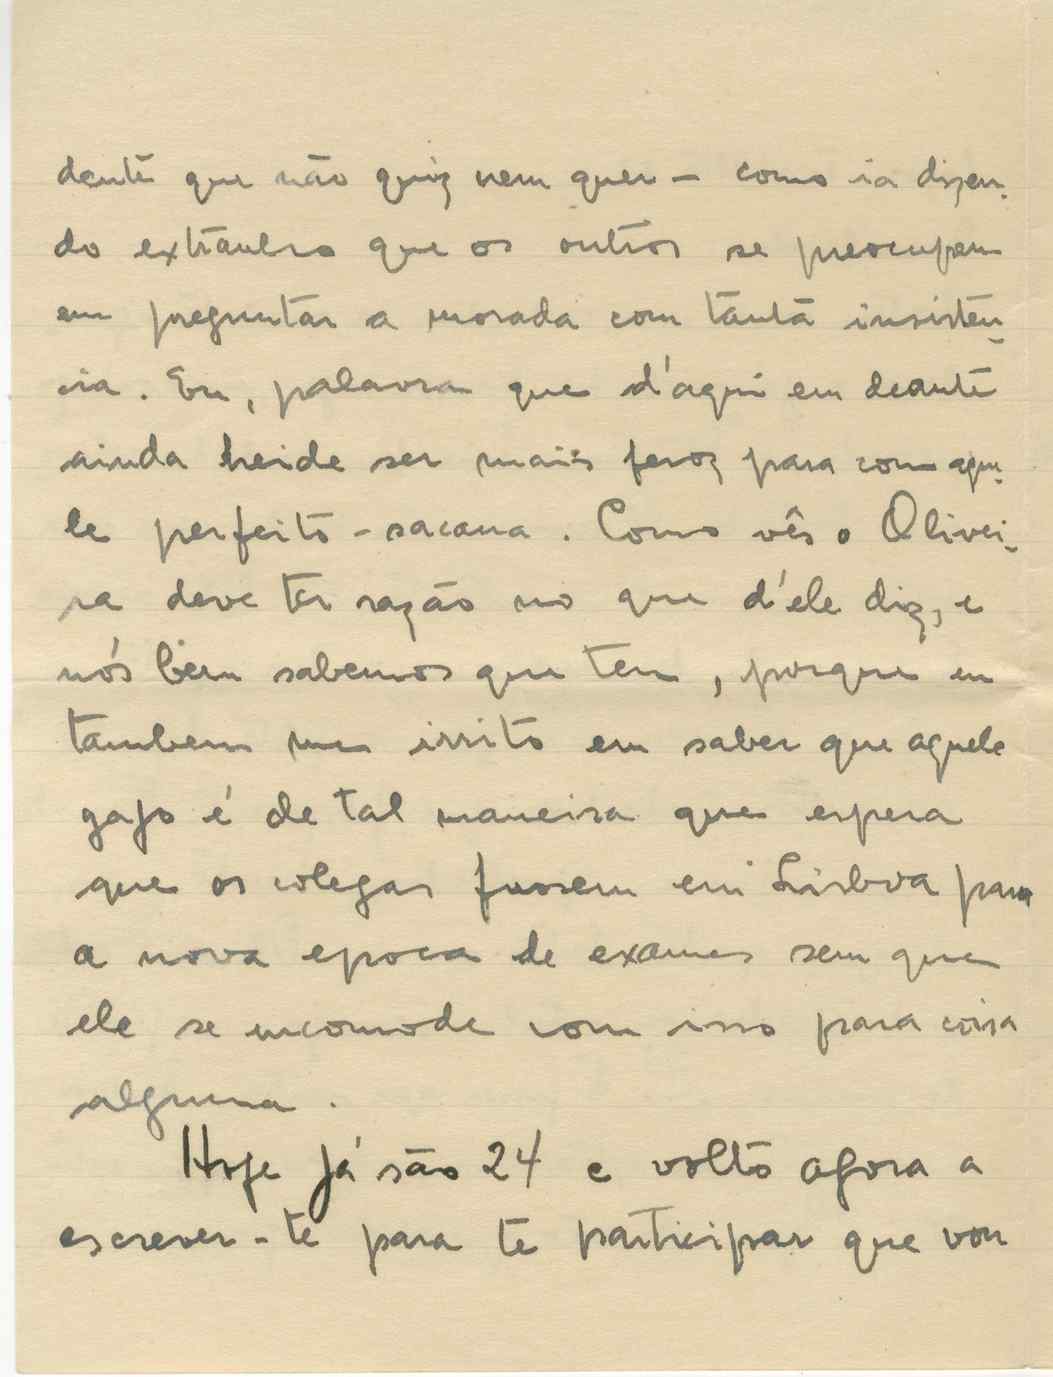 dente que não quiz nem quer — como ia dizen-
do extranho que os outros se preocupem
em preguntar a morada com tanta insisten-
cia. Eu, palavra que d'aqui em deante
ainda heide ser mais feroz para com aque-
le perfeito-sacana. Como vês o Olivei-
ra deve ter razão no que d'éle diz, e
nós bem sabemos que tem, porque eu
tambem me irrito em saber que aquele
gajo é de tal maneira que espera
que os colegas fossem em Lisboa para
a nova epoca de exames sem que
ele se incomode com isso para coisa
alguma.
Hoje já são 24 e volto agora a
escrever-te para te participar que vou